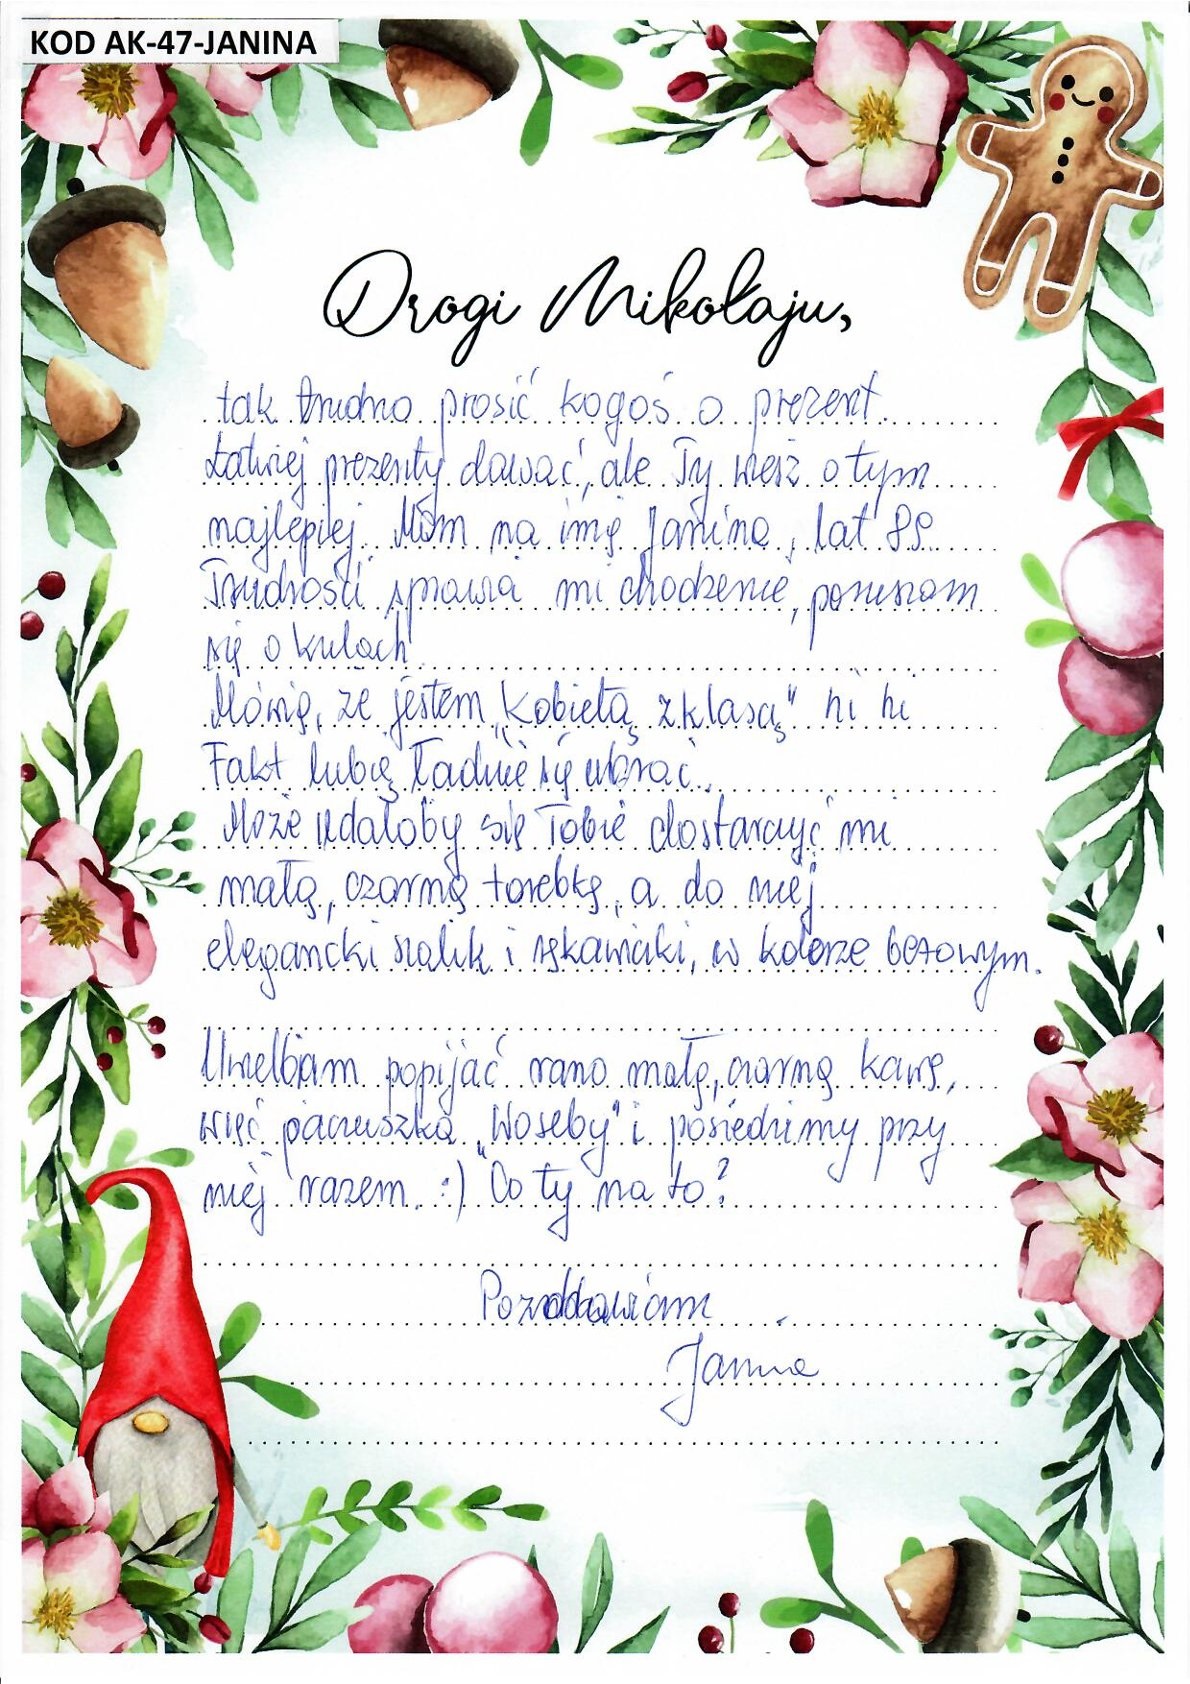 KOD AK-47-JANINA
Drogi Mikołaju,
tak trudno prosić kogoś o prezent.
Łatwiej prezenty dawać, ale Ty wiesz o tym
najlepiej. Mam na imię Janina, lat 89.
Trudności sprawia mi chodzenie, poruszam
się o kulach.
Mówię, że jestem „kobietą z klasą" hi hi
Fakt lubię ładnie się ubrać.
Może udałoby się Tobie dostarczyć mi
małą, czarną torebkę, a do niej
elegancki szalik i rękawiczki, w kolorze beżowym.
Uwielbiam popijać rano małą, czarną kawę,
więc paczuszka „Woseby" i posiedzimy przy
niej razem. :) Co ty na to?
Pozdrawiam
Janina